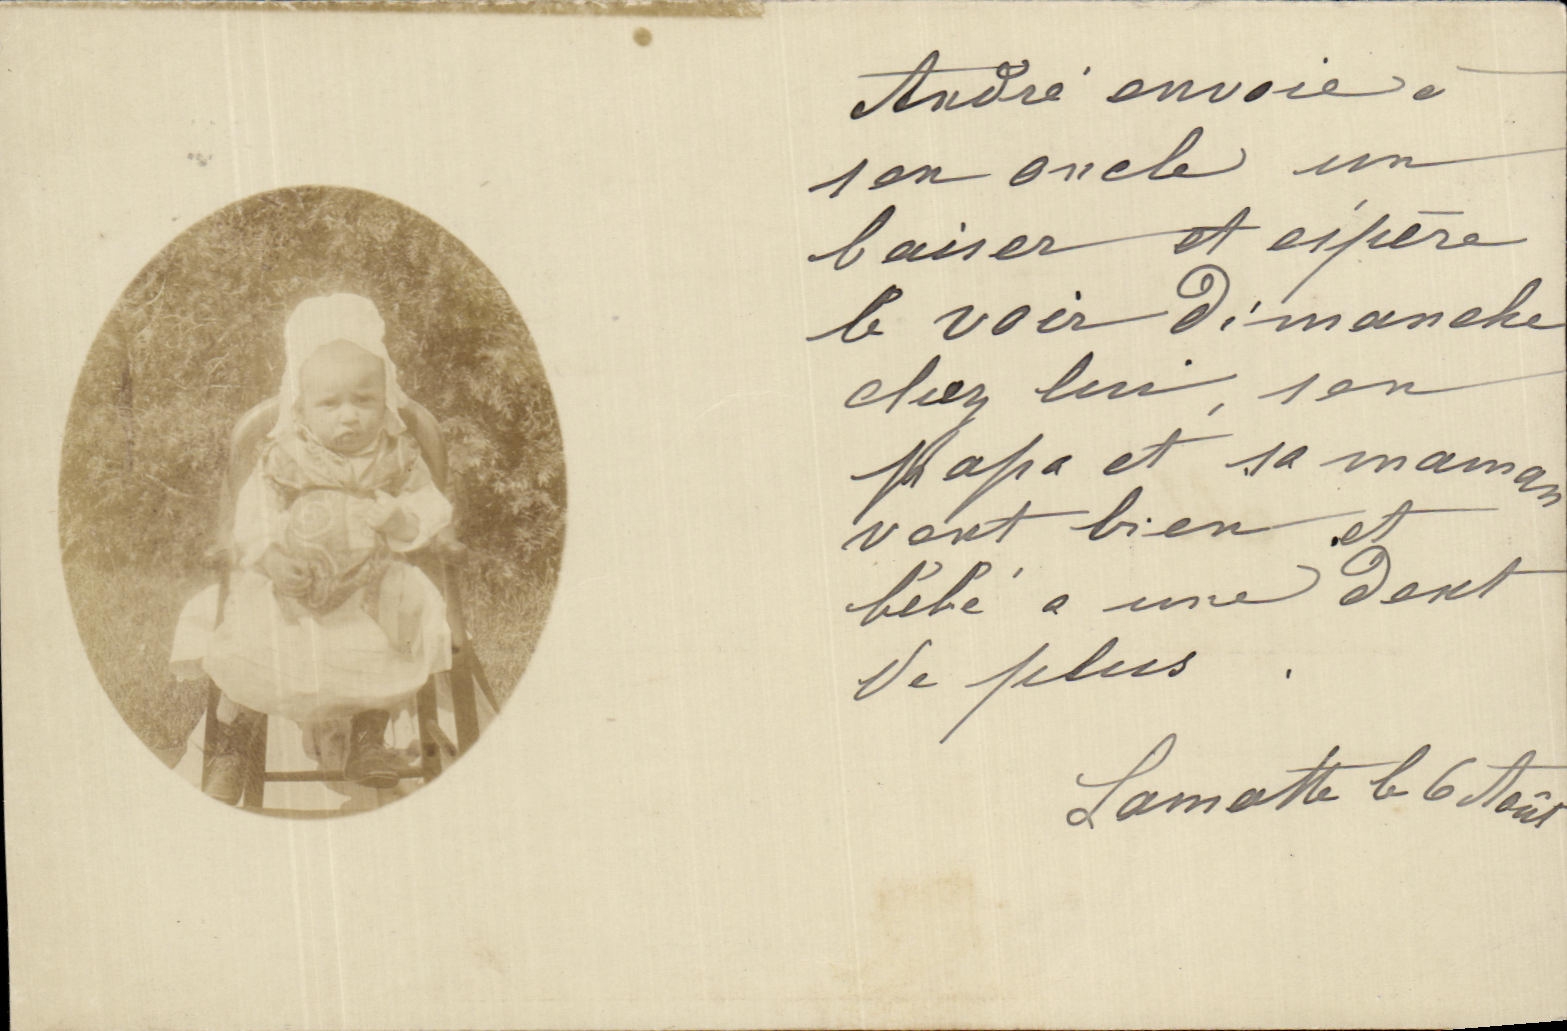 André envoie à
son oncle un
baiser et espère
le voir dimanche
chez lui, son
papa et sa maman
vont bien et
bébé a une dent
de plus.
Lamotte le 6 Août